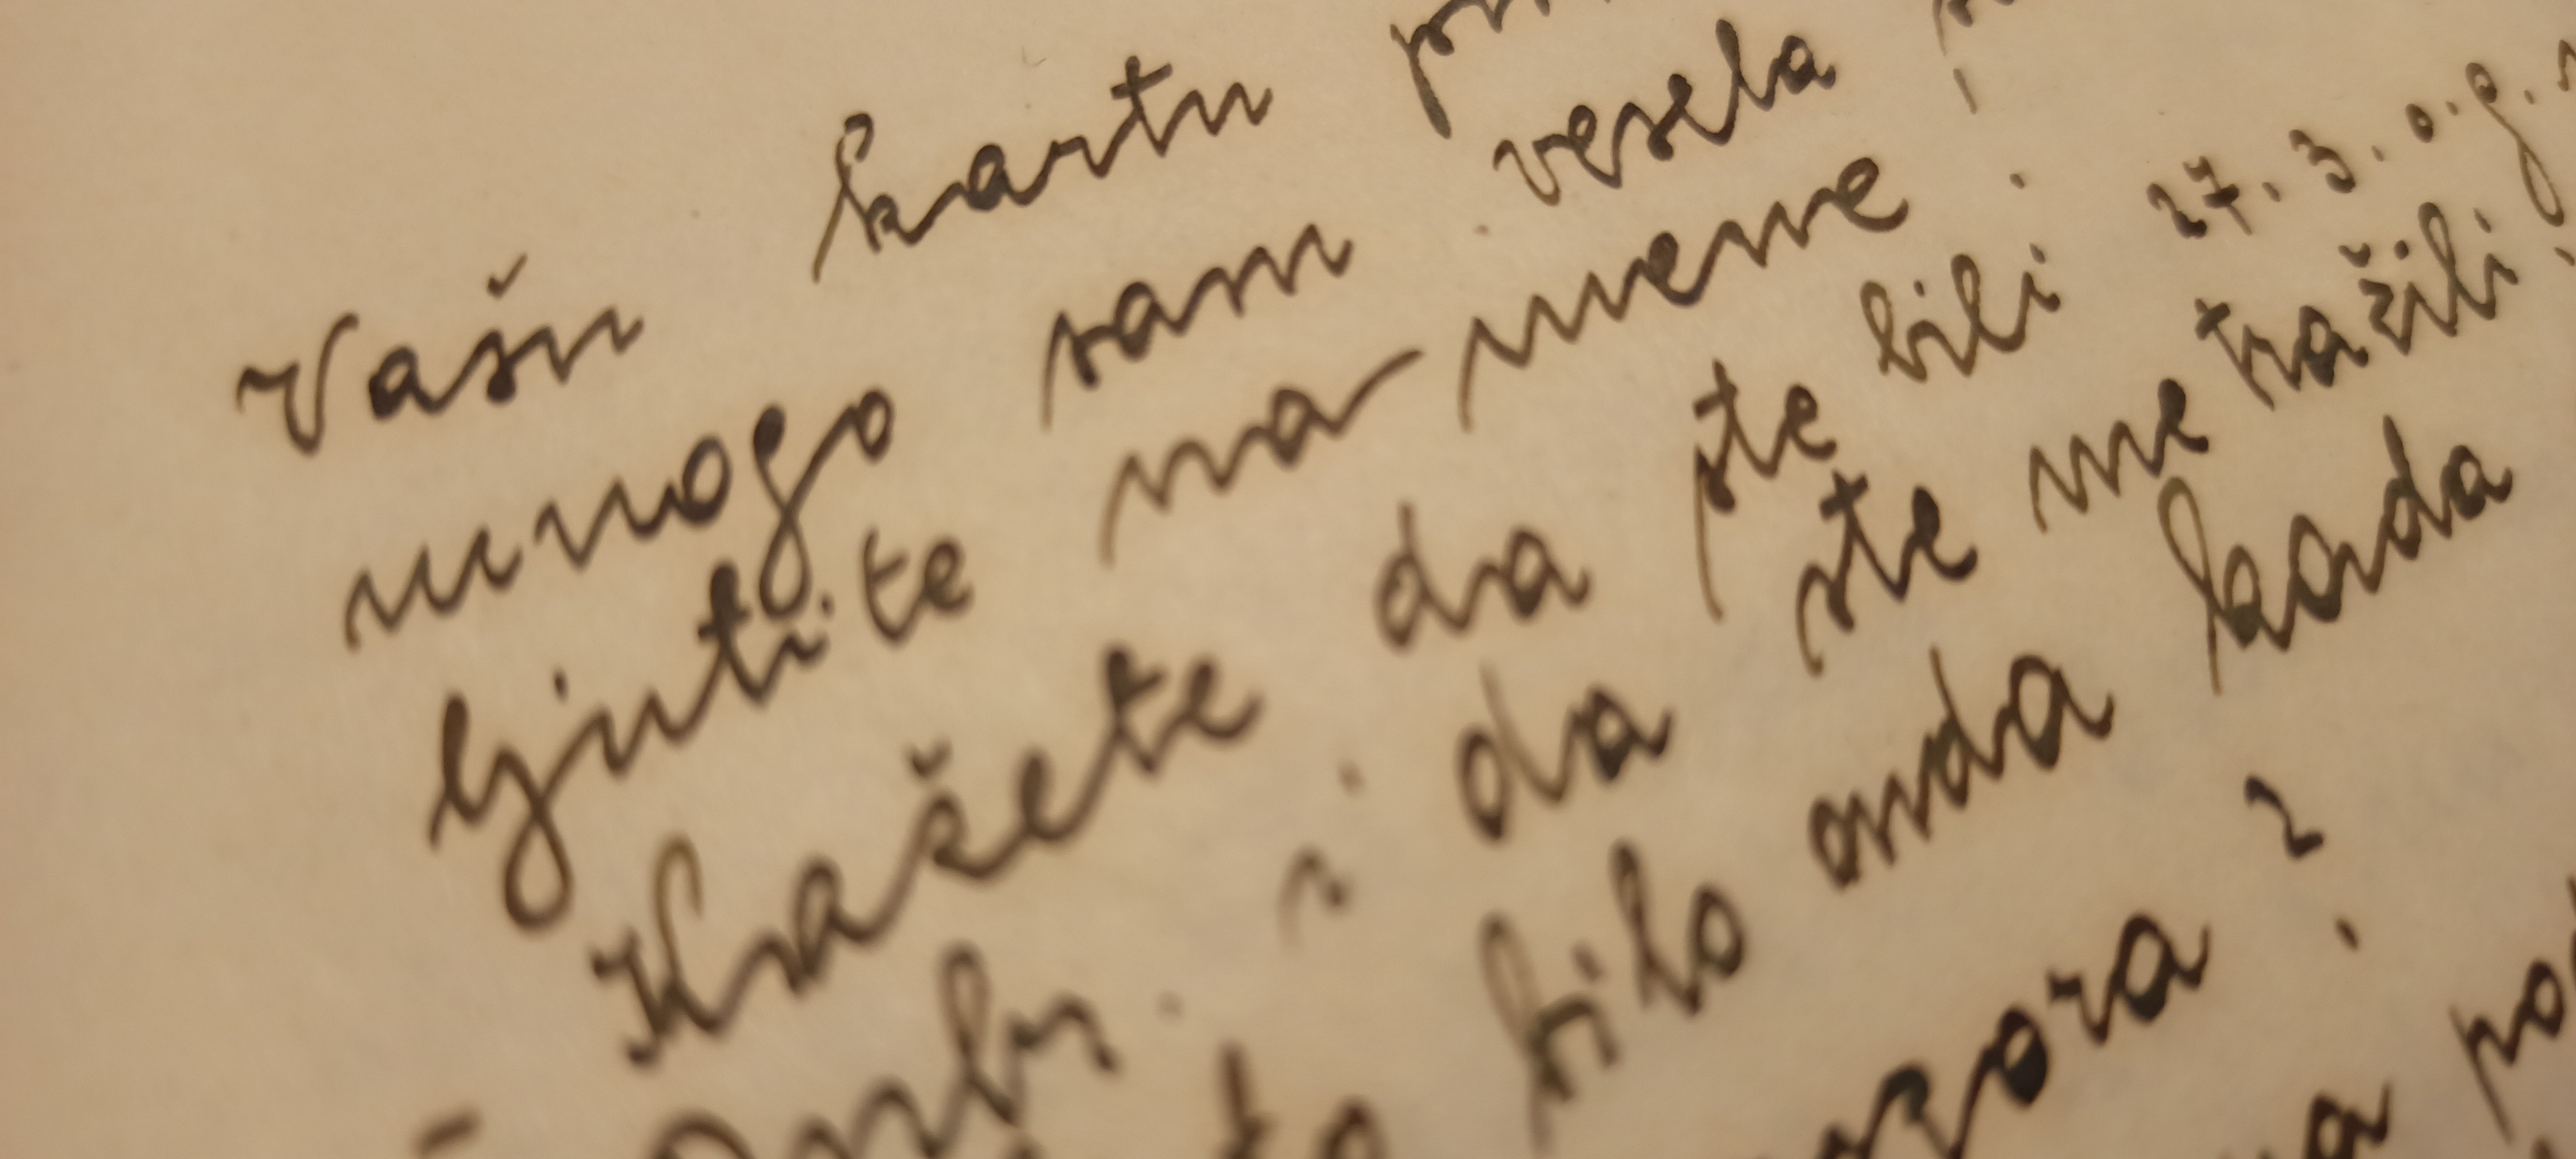 Vašu kartu
mnogo sam vesela
ljutite na mene.
Kažete da ste bili 27. 3. o.g.
i da ste me tražili
bilo onda kada
?